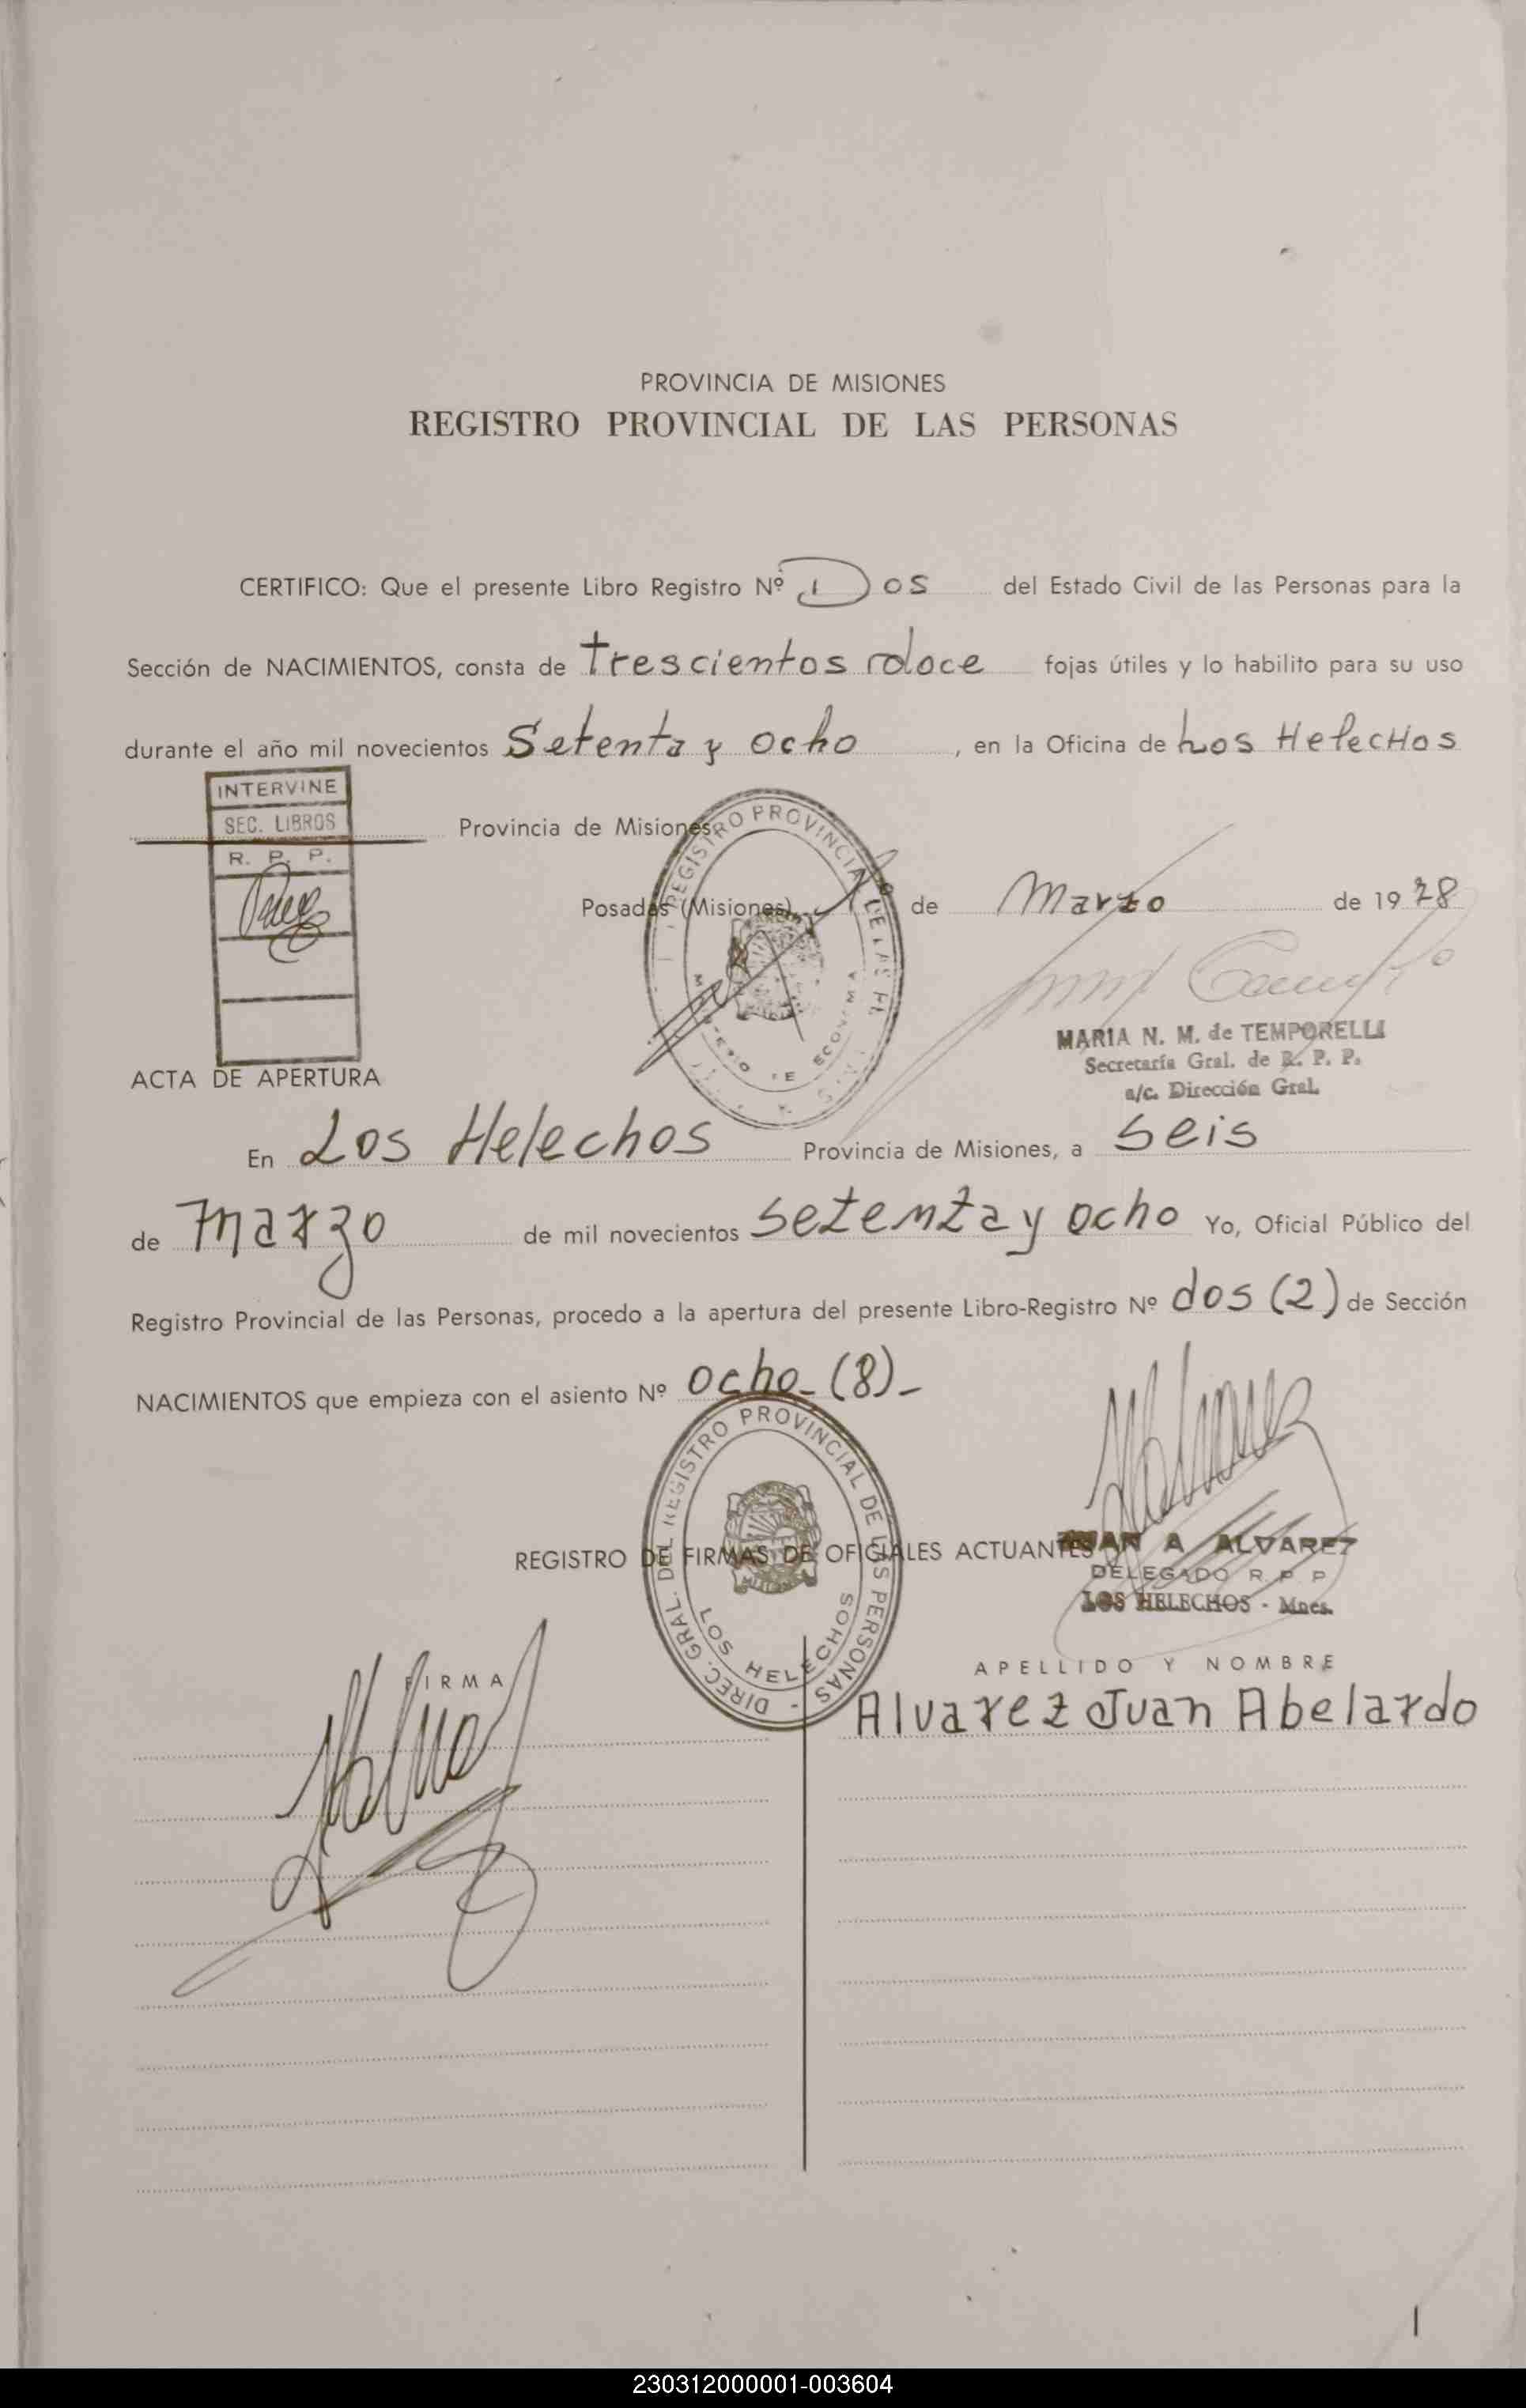 PROVINCIA DE MISIONES
REGISTRO PROVINCIAL DE LAS PERSONAS
CERTIFICO: Que el presente Libro Registro Nº Dos del Estado Civil de las Personas para la
Sección de NACIMIENTOS, consta de trescientos doce fojas útiles y lo habilito para su uso
durante el año mil novecientos Setenta y ocho, en la Oficina de Los HelecHos
INTERVINE
SEC. LIBROS
R. P. P.
Provincia de Misiones,
Posadas (Misiones), 1º de Marzo de 1978
REGISTRO PROVINCIAL DE LAS
MARIA N. M. de TEMPORELLI
Secretaría Gral. de R. P. P.
a/c. Dirección Gral.
ACTA DE APERTURA
En Los Helechos Provincia de Misiones, a seis
de marzo de mil novecientos setenta y ocho Yo, Oficial Público del
Registro Provincial de las Personas, procedo a la apertura del presente Libro-Registro Nº dos (2) de Sección
NACIMIENTOS que empieza con el asiento Nº ocho-(8)-
DIREC. GRAL. DEL REGISTRO PROVINCIAL DE LAS PERSONAS -
LOS HELECHOS
REGISTRO DE FIRMAS DE OFICIALES ACTUANTES
JUAN A ALVAREZ
DELEGADO R P P
LOS HELECHOS - Mnes.
FIRMA
APELLIDO Y NOMBRE
Alvarez Juan Abelardo
1
230312000001-003604